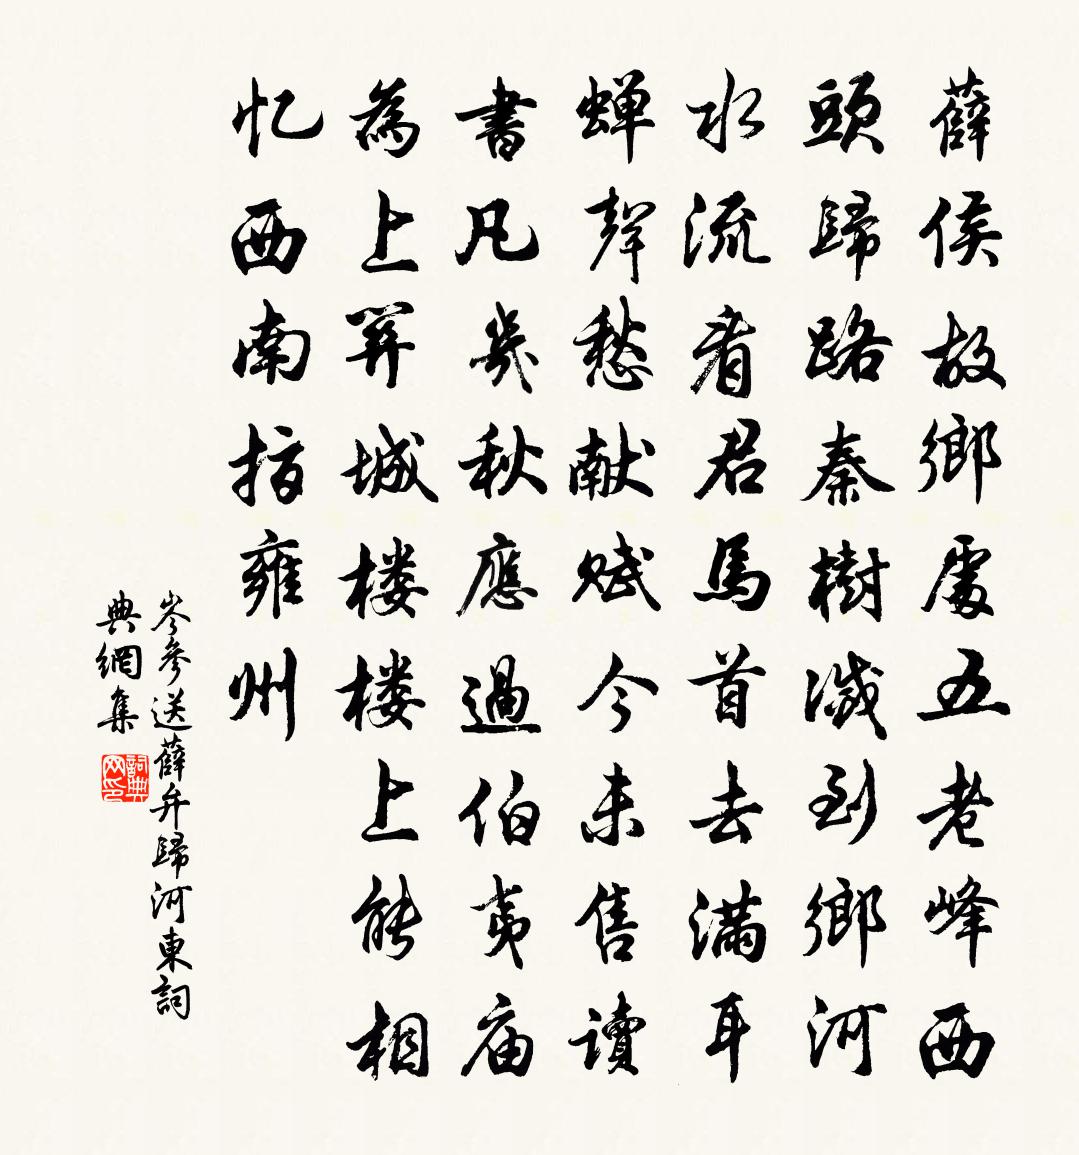 薛侯故鄉處五老峰西
頭歸路秦樹滅到鄉河
水流看君馬首去滿耳
蝉聲愁献赋今未售讀
書凡幾秋應過伯夷庙
為上關城楼楼上能相
忆西南指雍州
岑參送薛弁歸河東詞
典網集
詞典网印